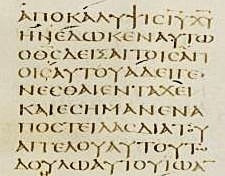 ΑΠΟΚΑΛΥΨΙϹΙ̅Υ̅Χ̅Υ̅
ΗΝΕΔΩΚΕΝΑΥΤΩ
ΟΘ̅Ϲ̅ΔΕΙΞΑΙΤΟΙϹΑΓΙ
ΟΙϹΑΥΤΟΥΑΔΕΙΓΕ
ΝΕϹΘΑΙΕΝΤΑΧΕΙ
ΚΑΙΕϹΗΜΑΝΕΝΑ
ΠΟϹΤΕΙΛΑϹΔΙΑΤΟΥ
ΑΓΓΕΛΟΥΑΥΤΟΥΤΩ
ΔΟΥΛΩΑΥΤΟΥΙΩΑ